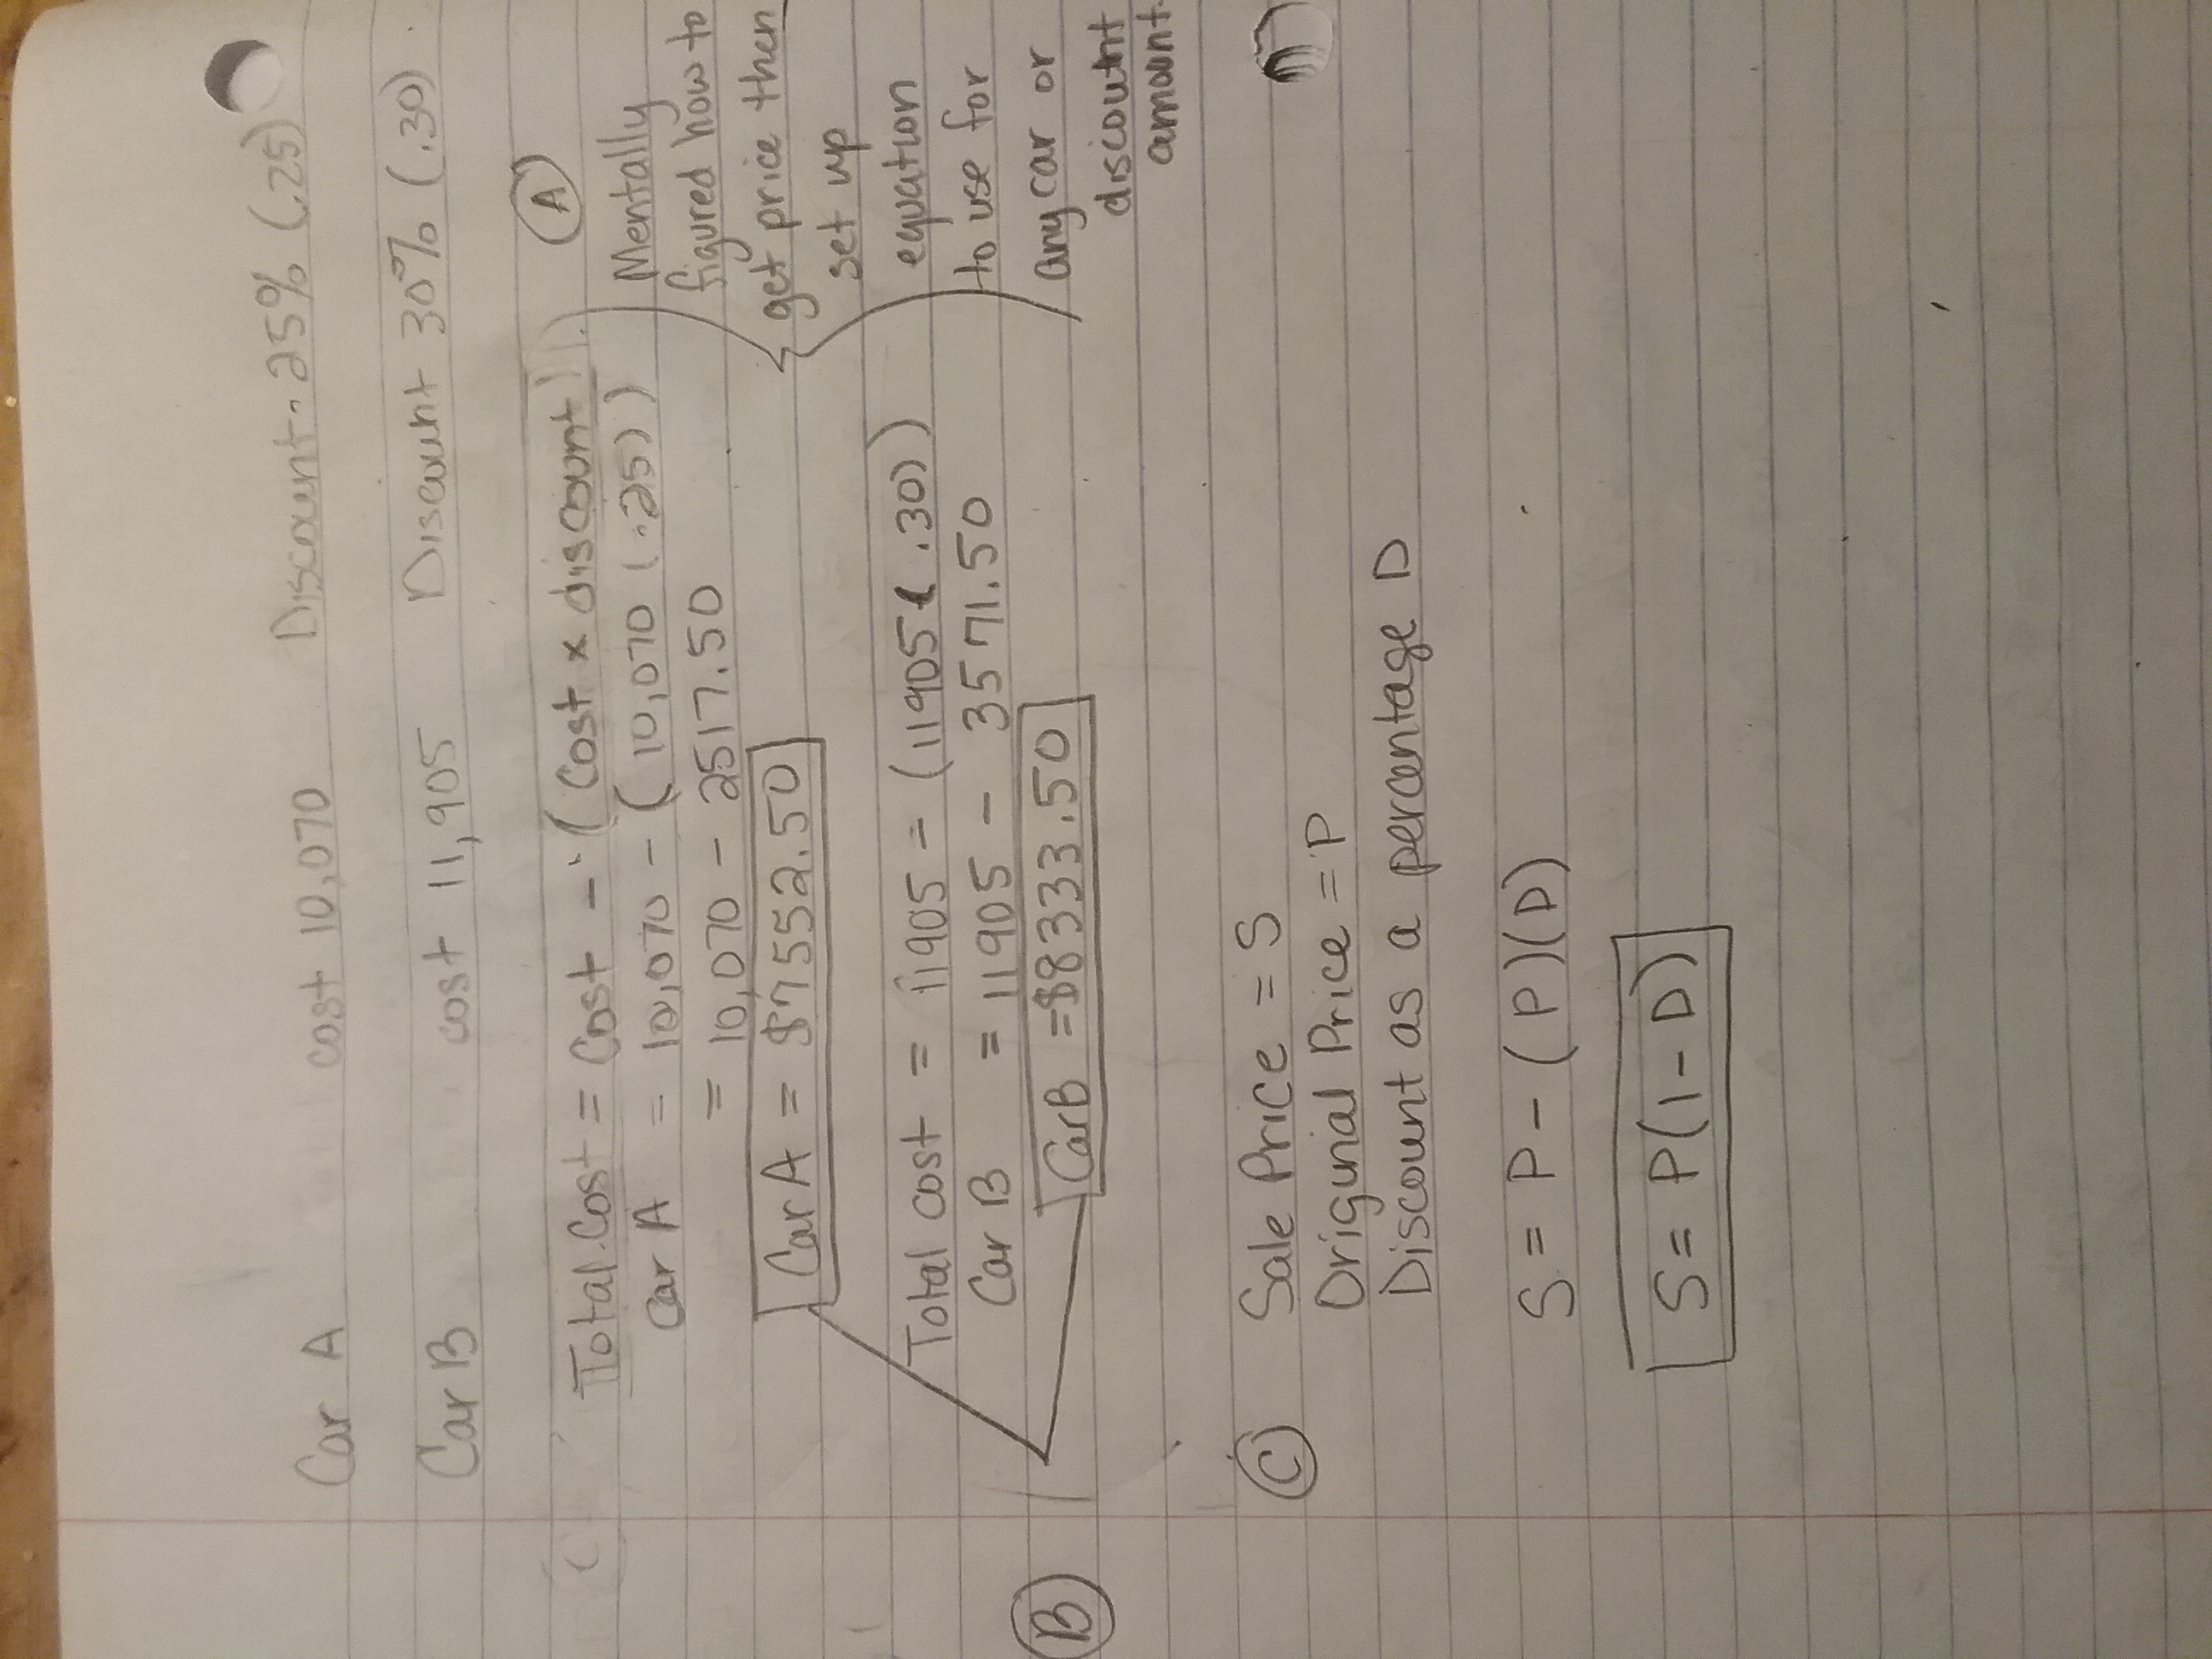 Car A cost 10,070 Discount. 25% (.25)
Car B cost 11,905 Discount 30% (.30)
Total Cost = Cost - (Cost x discount)
Car A = 10,070 - (10,070 (.25))
= 10,070 - 2517.50
Car A = $7552.50
Total cost = 11905 - (11905 (.30))
Car B = 11905 - 3571.50
Car B = $8333.50
A
Mentally
figured how to
get price then
set up
equation
to use for
any car or
discount
amount.
B
C Sale Price = S
Origunial Price = P
Discount as a percentage D
S = P - (P)(D)
S = P(1-D)